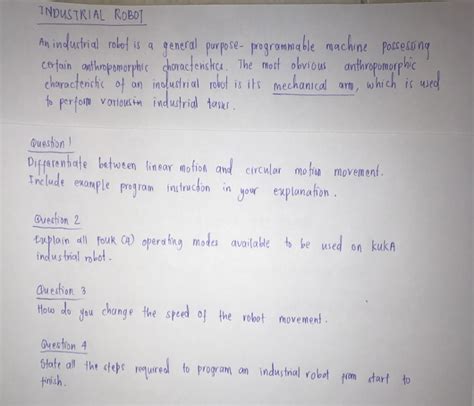 INDUSTRIAL ROBOT
An industrial robot is a general purpose- programmable machine possessing
certain anthropomorphic characteristics. The most obvious anthropomorphic
characteristic of an industrial robot is its mechanical arm, which is used
to perform various industrial tasks.
Question 1
Differentiate between linear motion and circular motion movement.
Include example program instruction in your explanation.
Question 2
Explain all four (4) operating modes available to be used on KUKA
industrial robot.
Question 3
How do you change the speed of the robot movement.
Question 4
State all the steps required to program an industrial robot from start to
finish.